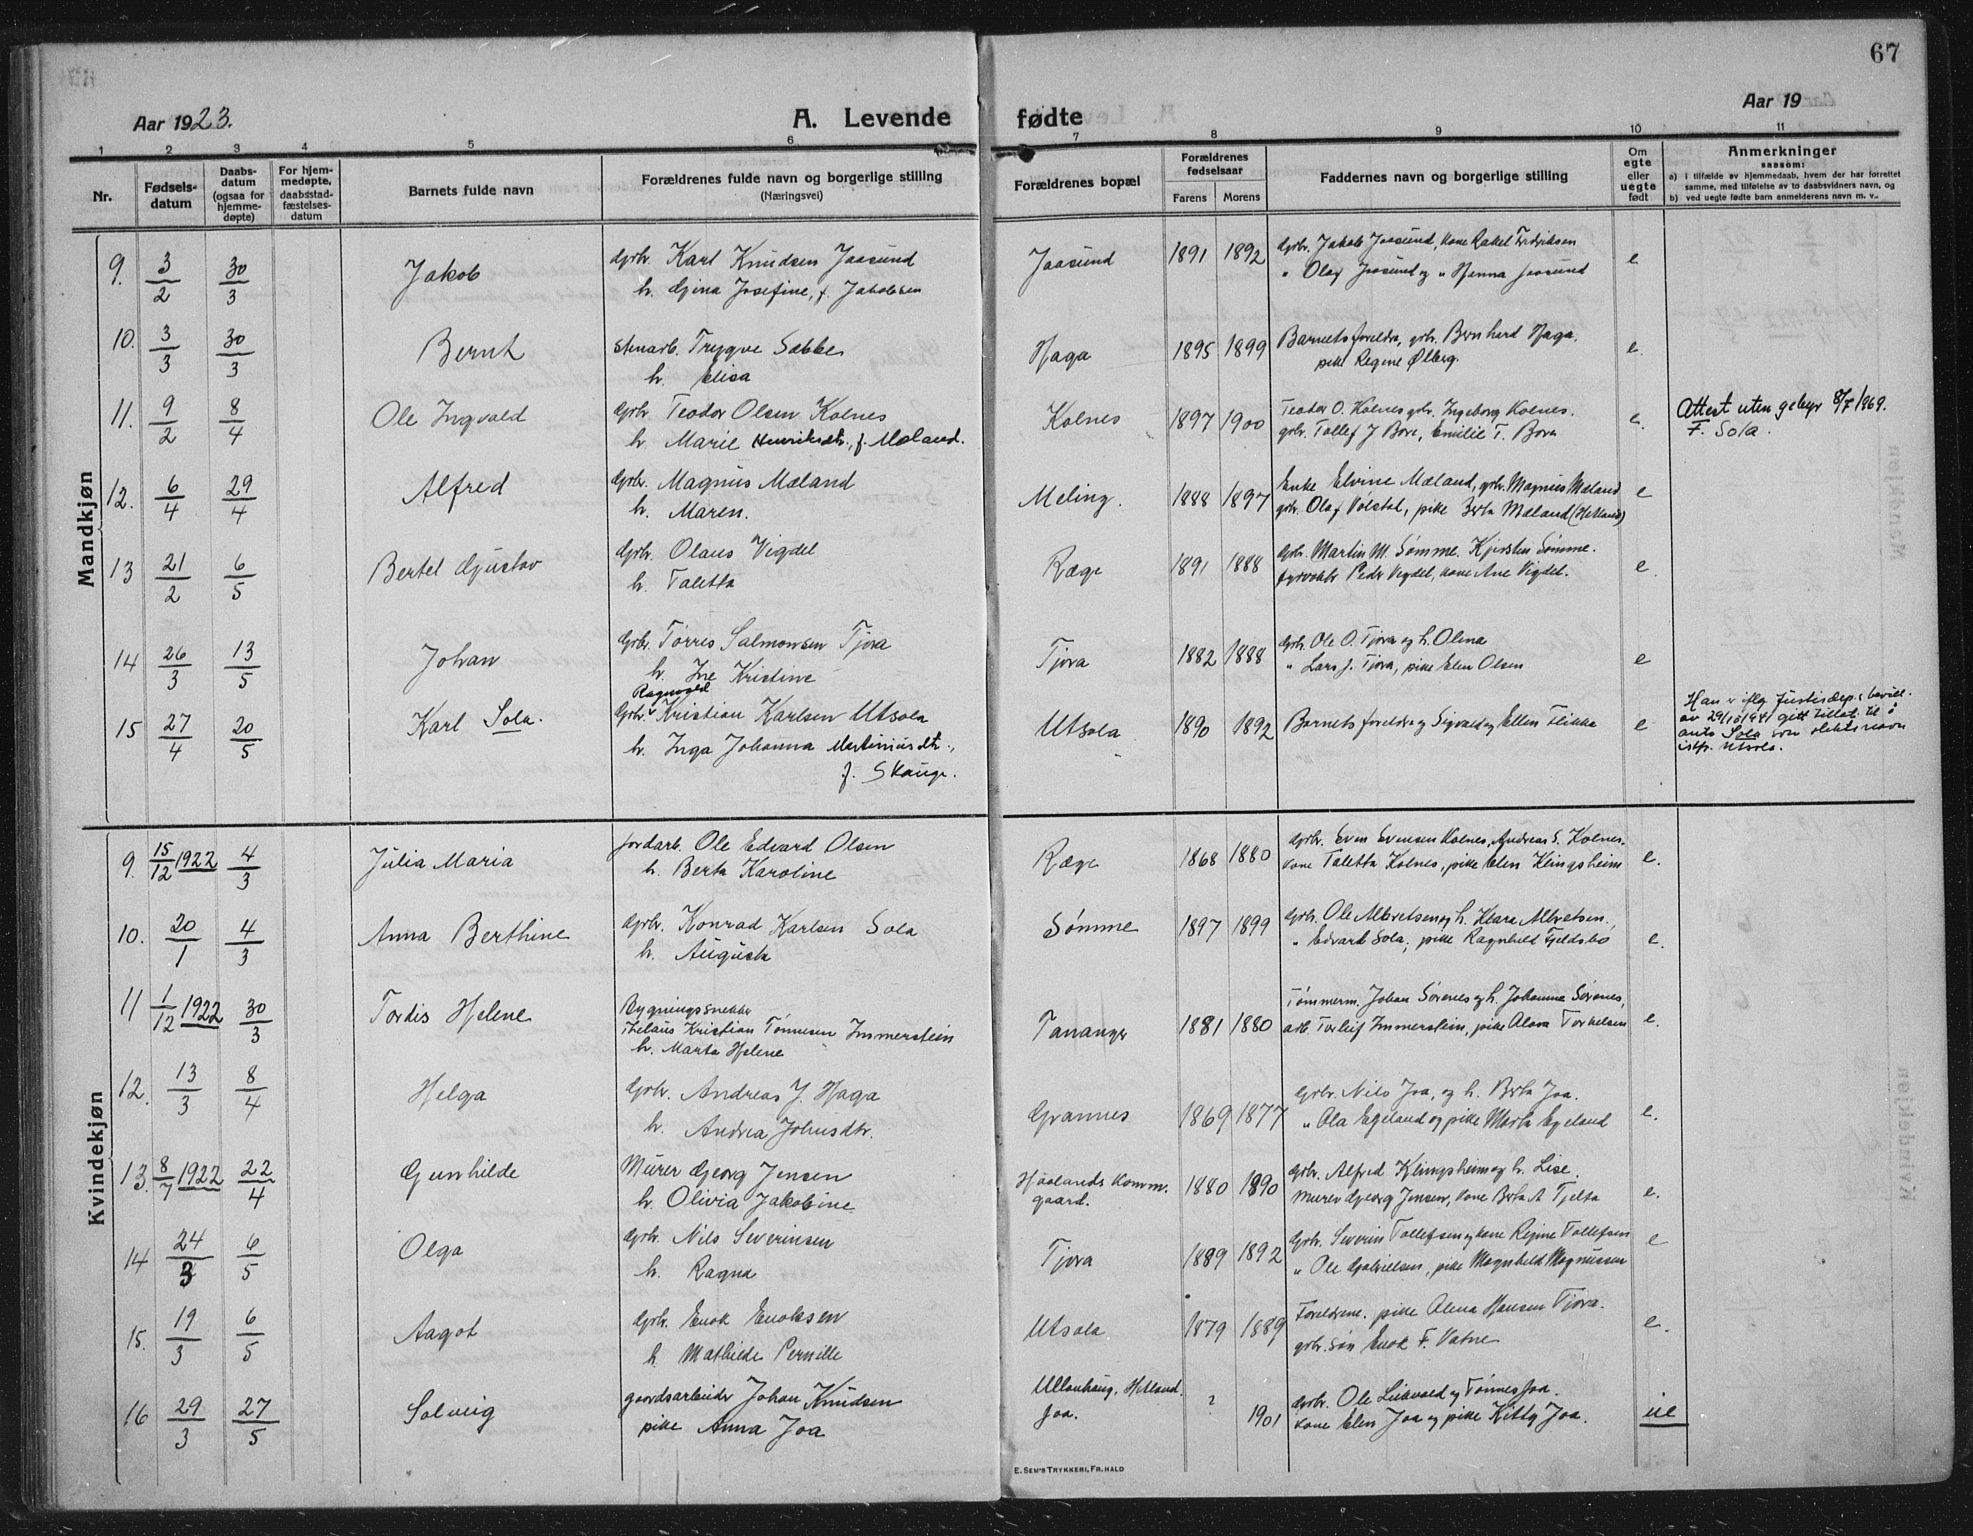 67
Aar 1923.
A. Levende fødte
Aar 19
1 2 3 4 5 6 7 8 9 10 11
Nr.
Fødsels-
datum
Daabs-
datum
(ogsaa for
hjemme-
døpte)
For hjem-
medøpte,
daabsstad-
fæstelses-
datum
Barnets fulde navn
Forældrenes fulde navn og borgerlige stilling
(Næringsvei)
Forældrenes bopæl
Forældrenes
fødselsaar
Farens Morens
Faddernes navn og borgerlige stilling
Om
egte
eller
uegte
født
Anmerkninger
saasom:
a) i tilfælde av hjemmedaab, hvem der har forrettet
samme, med tilføielse av to daabsvidners navn, og
b) ved uegte fødte barn anmelderens navn m. v.
Mandkjøn
9. 3/2 30/3 Jakob
Grbr. Karl Knudsen Jaasund
h. Gjina Josefine, f. Jakobsen
Jaasund 1891 1892
Grbr. Jakob Jaasund, kone Rakel Fredriksen
" Olaf Jaasund og " Hanna Jaasund
e
10. 3/3 30/3 Bernt
stenarb. Trygve Sæbbe
h. Elisa
Haga 1895 1899
Barnets foreldre, grbr. Bernhard Haga,
pike Regine Ølberg.
e.
11. 9/2 8/4 Ole Ingvald
Grbr. Teodor Olsen Kolnes
h. Marie Henriksdtr., f. Mæland.
Kolnes 1897 1900
Teodor O. Kolnes grbr. Ingeborg Kolnes.
grbr. Tollef J Bore, Emilie T. Bore
e.
Attest uten gebyr 8/7 1969.
F. Sola.
12. 6/4 29/4 Alfred
Grbr. Magnus Mæland
h. Maren.
Meling. 1888 1897
Enke Elvine Mæland, grbr. Magnus Mæland
grbr. Olaf Vølstad, pike Berta Mæland (Helland)
e
13 21/2 6/5 Bertel Gustav
Grbr. Olaus Vigdel
h. Taletta
Ræge 1891 1888
Grbr. Martin M. Sømme. Kjirsten Sømme.
fyrvokter Peder Vigdel, kone Ane Vigdel.
e
14 26/3 13/5 Johan
Grbr. Tørres Salmonsen Tjora
h. Ine Kristine
Tjora 1882 1888
Grbr. Ole O. Tjora og h. Olina
" Lars J. Tjora, pike Elen Olsen
e
15 27/4 20/5 Karl Sola.
Ragnvald
Grbr. Kristian Karlsen Utsola
h. Inga Johanna Martiniusdtr.,
f. Skauge.
Utsola 1890 1892
Barnets foreldre og Sigvald og Ellen Flikke
e
Han er iflg. Justisdep.s bevill.
av 29/10 1941 gitt tillat. til å
anta Sola som slektsnavn
istf. Utsola.
Kvindekjøn
9. 15/12 1922 4/3 Julia Maria
jordarb. Ole Edvard Olsen
h. Berta Karoline
Ræge 1868 1880
Grbr. Sven Svensen Kolnes, Andreas S. Kolnes.
kone Taletta Kolnes, pike Elen Klingsheim
e.
10. 20/1 4/3 Anna Berthine
Grbr. Konrad Karlsen Sola
h. Augusta
Sømme 1897 1899
Grbr. Ole Albretsen og h. Klara Albretsen,
" Edvart Sola, pike Ragnhild Fjeldsbø
e.
11 1/12 1922 30/3 Tordis Helene
Bygningssnekker
Thelaus Kristian Tønnesen Immerstein
h. Marta Helene
Tananger 1881 1880
Tømmerm. Johan Sørenes og h. Johanna Sørenes,
arb. Torleif Immerstein, pike Alma Torkelsen
e.
12. 13/3 8/4 Helga
Grbr. Andreas J. Haga
h. Andrea Johnsdtr.
Grannes 1869 1877
Grbr. Nils Joa, og h. Berta Joa.
" Ola Egeland og pike Marta Egeland
e.
13. 8/7 1922 22/4 Gunhilde
Murer Georg Jensen
h. Olivia Jakobine
Haalands Komm.
gaard. 1880 1890
Grbr. Alfred Klingsheim og h. Lise.
Murer Georg Jensen, kone Berta A Tjelta
e.
14 24/3 6/5 Olga
Grbr. Nils Severinsen
h. Ragna
Tjora 1889 1892
Grbr. Severin Tollefsen og kone Regine Tollefsen
" Ole Gabrielsen, pike Magnhild Magnussen
e
15. 19/3 6/5 Aagot
Grbr. Enok Enoksen
h. Mathilde Pernille
Utsola 1879 1889
Foreldrene. pike Alma Hansen Tjora.
grbr. søn Enok F. Vatne
e.
16 29/3 27/5 Solveig
gaardsarbeider Johan Knudsen
pike Anna Joa
Ullenhaug, Hetland.
Joa. ? 1901
Grbr. Ole Liknvald og Tønnes Joa.
kone Elen Joa og pike Kitty Joa.
ue
E. SEM'S TRYKKERI, FR.HALD